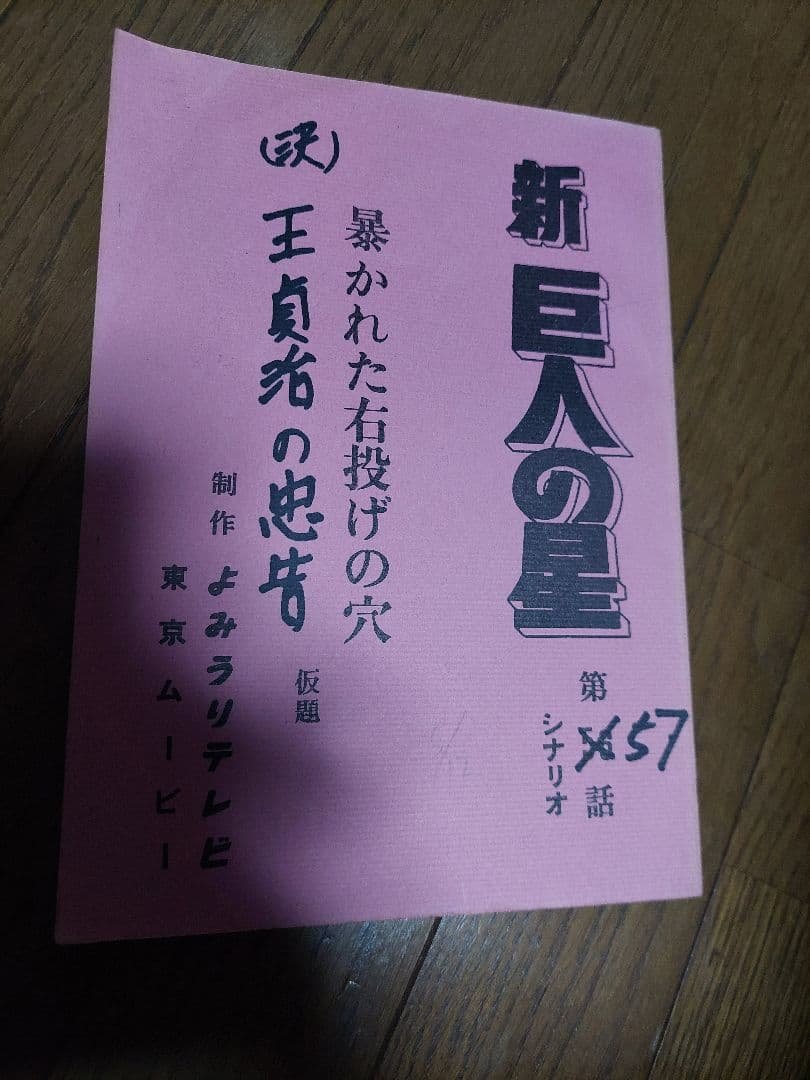 新巨人の星
第 57 話
シナリオ
暴かれた右投げの穴
仮題
(決)
王貞治の忠告
制作 よみうりテレビ
東京ムービー